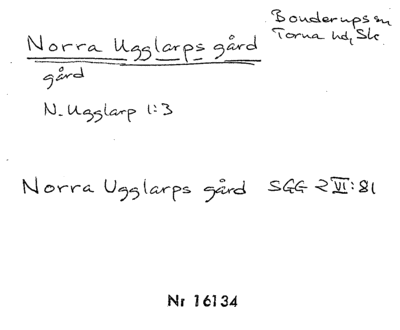 Bonderups sn
Torna hd, Sk
Norra Ugglarps gård
gård
N. Ugglarp 1:3
Norra Ugglarps gård SGG 2 VI:81
Nr 16134